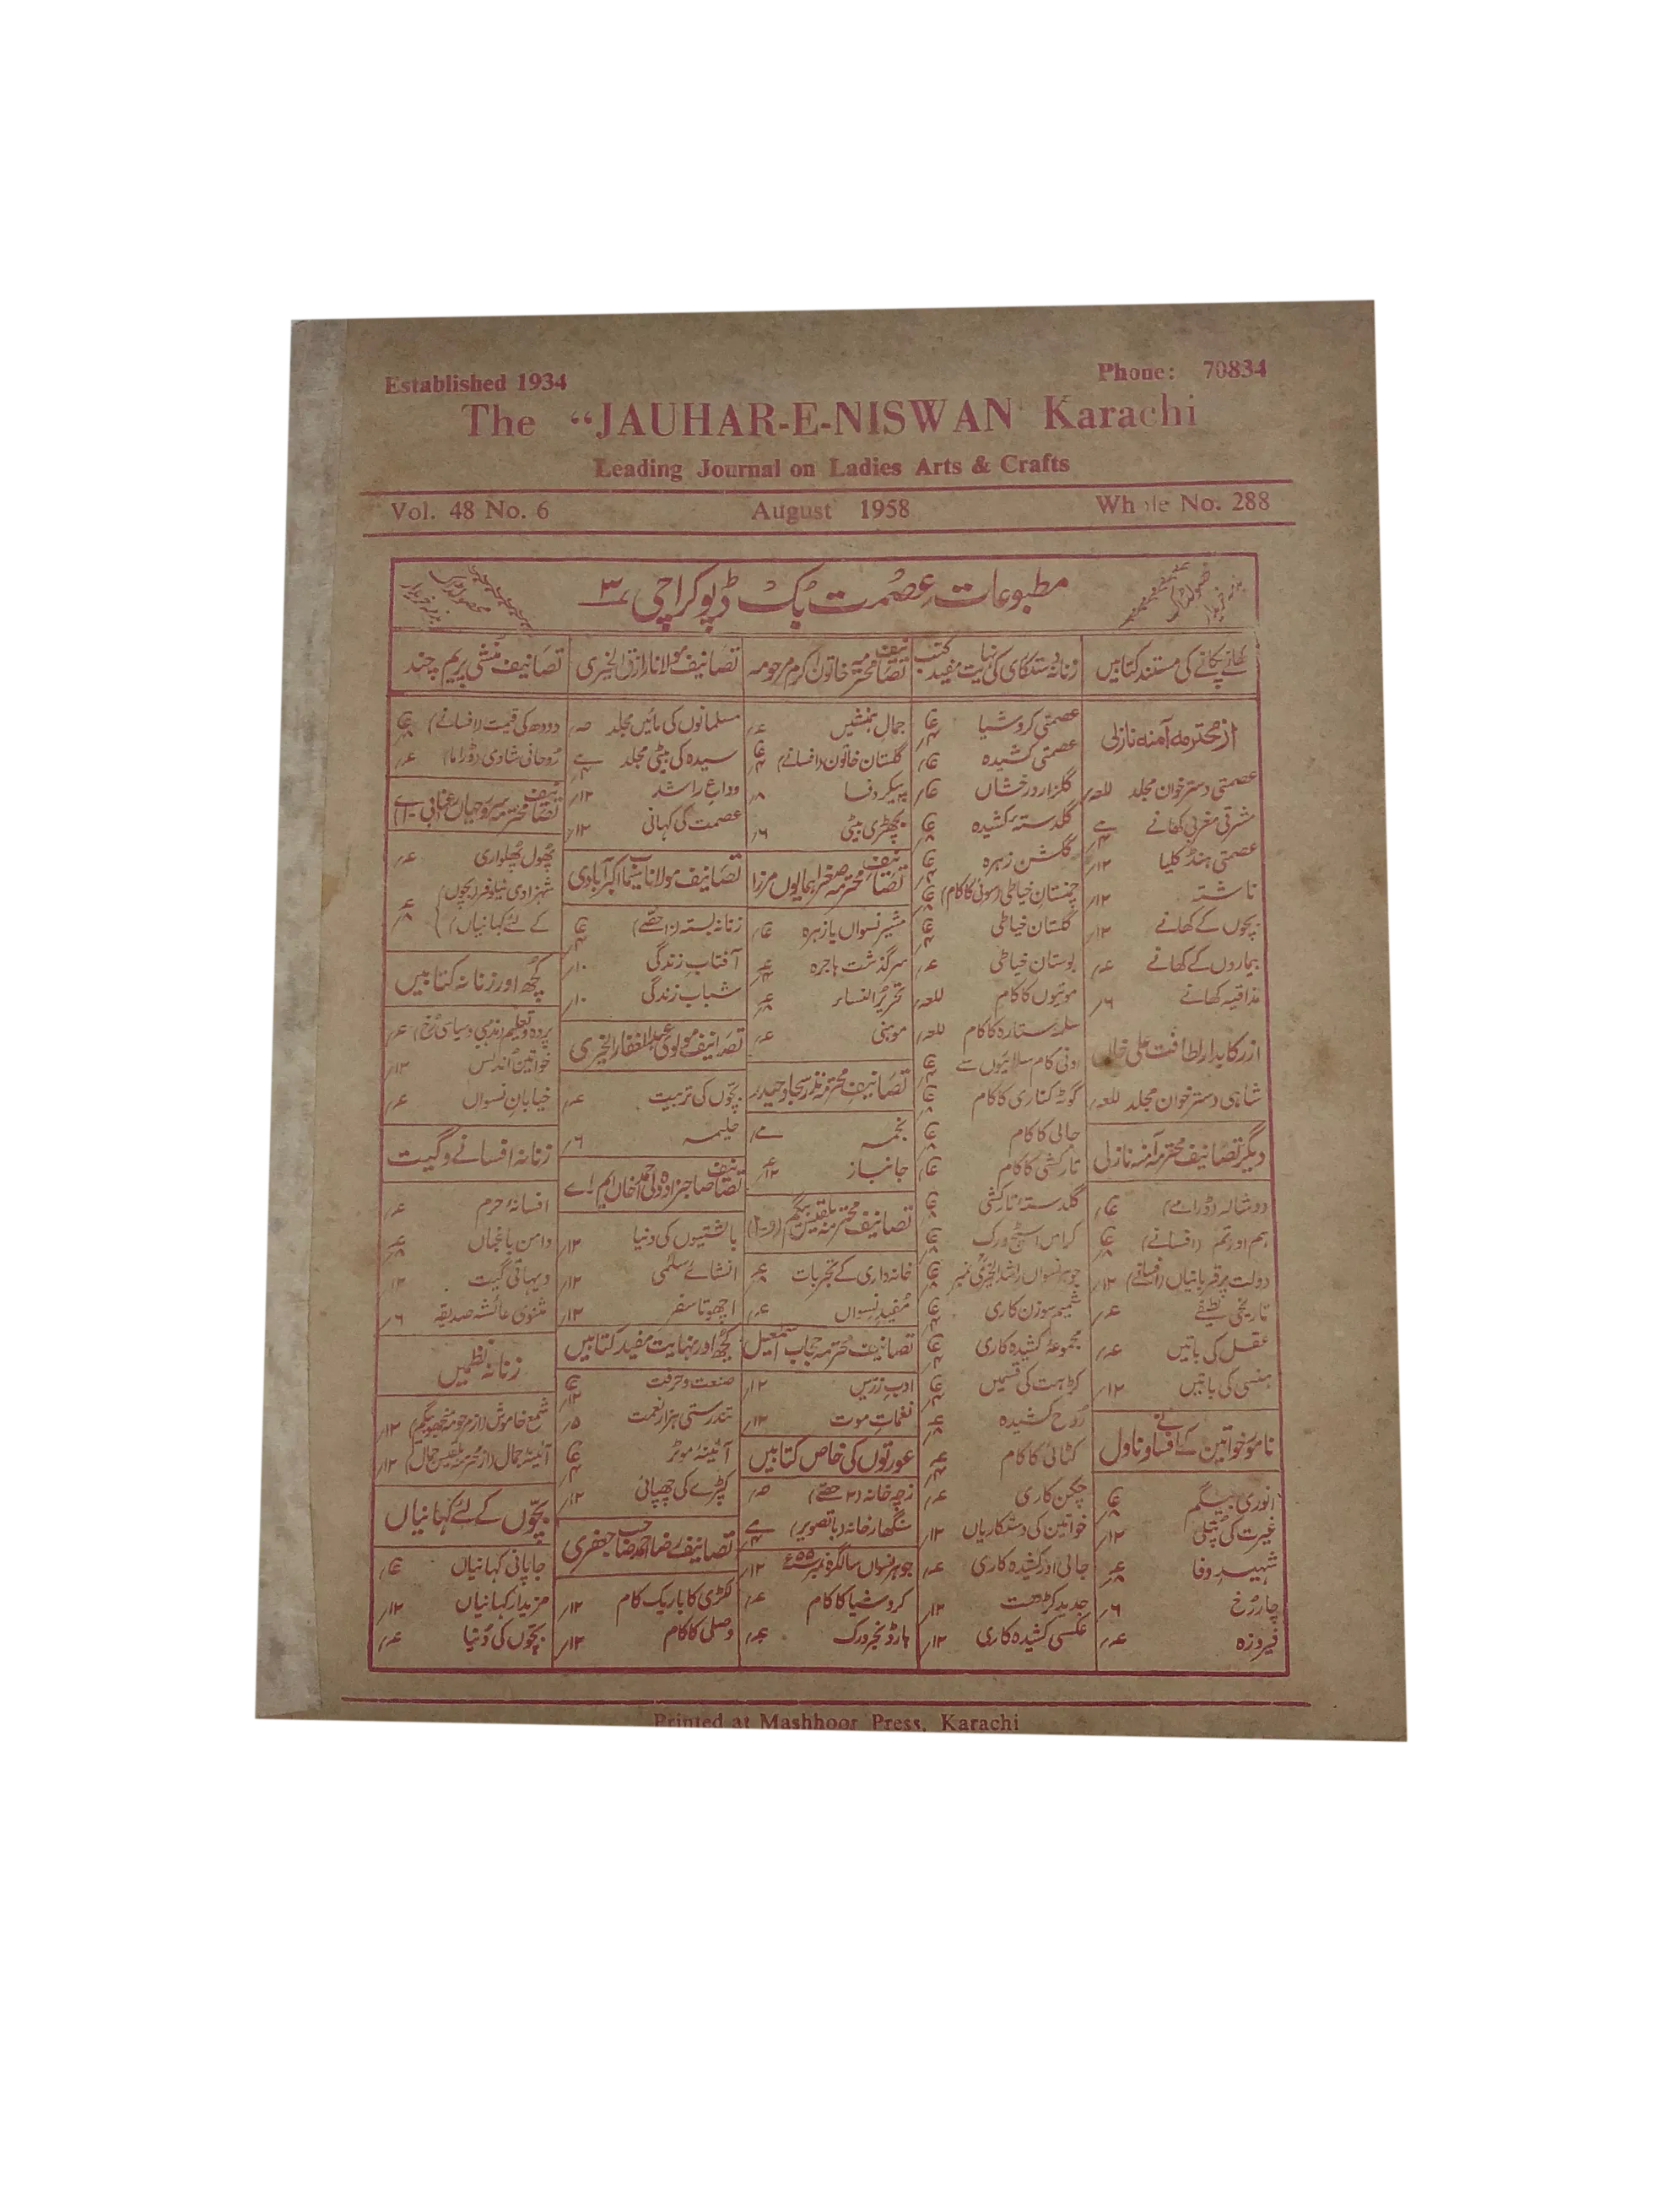 Established 1934
Phone: 70834
The “JAUHAR-E-NISWAN Karachi
Leading Journal on Ladies Arts & Crafts
Vol. 48 No. 6
August 1958
Whole No. 288
مطبوعاتِ عصمت بک ڈپو کراچی ۳
کھانے پکانے کی مستند کتابیں
از محترمہ آمنہ نازلی
عصمتی دسترخوان مجلد
مشرقی مغربی کھانے
عصمتی ہنڈکلیا ۱۲/
ناشتہ ۱۲/
بچوں کے کھانے ۱۲/
بیماروں کے کھانے
مذاقیہ کھانے ۶/
از رکابدار لطافت علی خاں
شاہی دسترخوان مجلد
دیگر تصانیف محترمہ آمنہ نازلی
دوشالہ (ڈرامے)
ہم اور تم (افسانے)
دولت پر قربانیاں (افسانے) ۱۲/
تاریخی لطیفے
عقل کی باتیں
ہنسی کی باتیں ۱۲/
نامور خواتین کے افسانے و ناول
انوری بیگم
غیرت کی پتلی ۱۲/
شہیدِ وفا
چار رخ ۶/
فیروزہ
زنانہ دستکاری کی نہایت مفید کتب
عصمتی کروشیا
عصمتی کشیدہ
گلزار درخشاں
گلدستہ کشیدہ
گلشن زہرہ
چمنستان خیاطی (سوئی کا کام)
گلستان خیاطی
بوستان خیاطی
موتیوں کا کام
سلمہ ستارہ کا کام
اونی کام سلائیوں سے
گوٹہ کناری کا کام
جالی کا کام
تارکشی کا کام
گلدستہ تارکشی
کراس اسٹچ ورک
جوہر نسواں راشد الخیری نمبر
شمیم سوزن کاری
مجموعہ کشیدہ کاری
کڑہت کی قسمیں
روح کشیدہ
کٹائی کا کام
چکن کاری
خواتین کی دستکاریاں ۱۲/
جالی اور کشیدہ کاری
جدید کڑھت ۱۲/
عکسی کشیدہ کاری ۱۲/
تصانیف محترمہ خاتون اکرم مرحومہ
جمال ہمنشیں
گلستان خاتون (افسانے)
پیکر وفا ۸/
بچھڑی بیٹی ۶/
تصانیف محترمہ صغرا ہمایوں مرزا
مشیر نسواں یا زہرہ
سرگذشت ہاجرہ
تحریر النساء
موہنی
تصانیف محترمہ نذر سجاد حیدر
نجمہ
جانباز
تصانیف محترمہ بلقیس بیگم
خانہ داری کے تجربات
مفید نسواں
تصانیف محترمہ حجاب اسمعیل
ادب زریں ۱۲/
نغمات موت ۱۲/
عورتوں کی خاص کتابیں
زچہ خانہ (۲ حصے)
سنگھار خانہ (باتصویر)
جوہر نسواں سالگرہ نمبر ۵۵ء ۱۲/
کروشیا کا کام
ہارڈنجر ورک
تصانیف مولانا رازق الخیری
مسلمانوں کی مائیں مجلد
سیدہ کی بیٹی مجلد
وداع راشد ۱۲/
عصمت کی کہانی ۱۲/
تصانیف مولانا سیماب اکبرآبادی
زنانہ بستہ
آفتاب زندگی ۱۰/
شباب زندگی ۱۰/
تصانیف مولوی عبدالغفار الخیری
بچوں کی تربیت
حلیمہ ۶/
تصانیف صاحبزادہ ولی احمد خاں ایم اے
بالشتیوں کی دنیا ۱۲/
انشائے سلمی ۱۲/
اچھوتا سفر ۱۲/
کچھ اور نہایت مفید کتابیں
صنعت و حرفت
تندرستی ہزار نعمت ۵/
آئینہ موٹر
کپڑے کی چھپائی ۱۲/
تصانیف رضا احمد صاحب جعفری
لکڑی کا باریک کام ۱۲/
وصلی کا کام ۱۲/
تصانیف منشی پریم چند
دودھ کی قیمت (افسانے)
روحانی شادی (ڈراما)
پھول پھلواری
شہزادی نیلوفر (بچوں
کے لئے کہانیاں)
کچھ اور زنانہ کتابیں
پردہ و تعلیم (مذہبی و سیاسی رخ)
خواتین اندلس ۱۲/
خیابان نسواں
زنانہ افسانے و گیت
افسانہ حرم
دامن باغباں
دیہاتی گیت ۱۲/
مثنوی عائشہ صدیقہ ۶/
زنانہ نظمیں
شمع خاموش ۱۲/
آئینہ جمال (از محترمہ بلقیس جمال) ۱۲/
بچوں کے لئے کہانیاں
جاپانی کہانیاں
مزیدار کہانیاں ۱۲/
بچوں کی دنیا
Printed at Mashhoor Press, Karachi